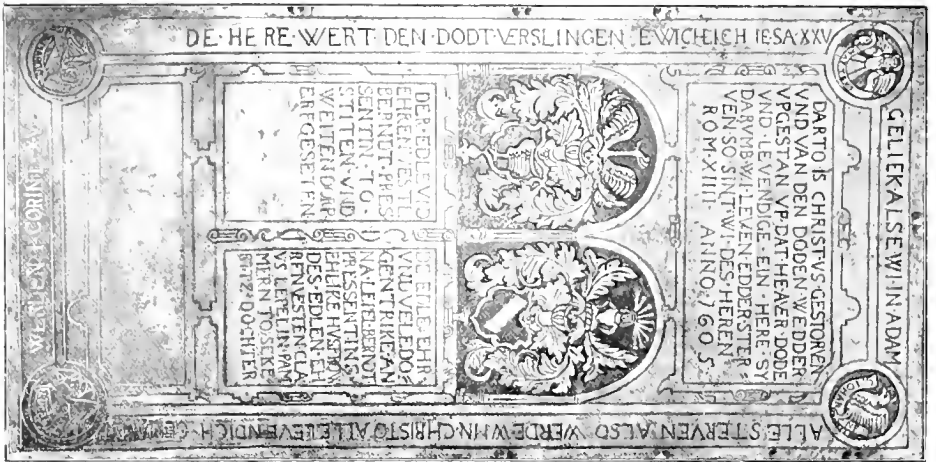 GELIEK ALSE WI IN ADAM
ALLE STERVEN ALSO WERDE WI IN CHRISTO ALLE LEVENDICH GE
DE·HERE·WERT·DEN·DODT·VERSLINGEN EWICHLICH IESA·XXV
DARTO IS CHRISTVS GESTORVEN
VND VAN DEN DODDEN WEDDER
VPGESTAN VP DAT HE AVER DODE
VND LEVENDIGE EIN HERE SY
DARVMB WI LEVEN EDDER STER
VEN SO SINT WI DES HEREN
ROM XIIII ANNO 1605
DER EDLE VND
EHRENVESTE
BERNDT PRES
SENTIN TO
STITEN VND
WEITENDORP
ERFGESETEN
DE EDLE EHR
VND VELEDO
GENTRIKE AN
NA LEPEL BERNDT
PRESSENTINS
EHLIKE HVSFROV
DES EDLEN EH
RENVESTEN CLA
VS LEPELIN PAM
MERN TO SEKE
RITZ DOCHTER